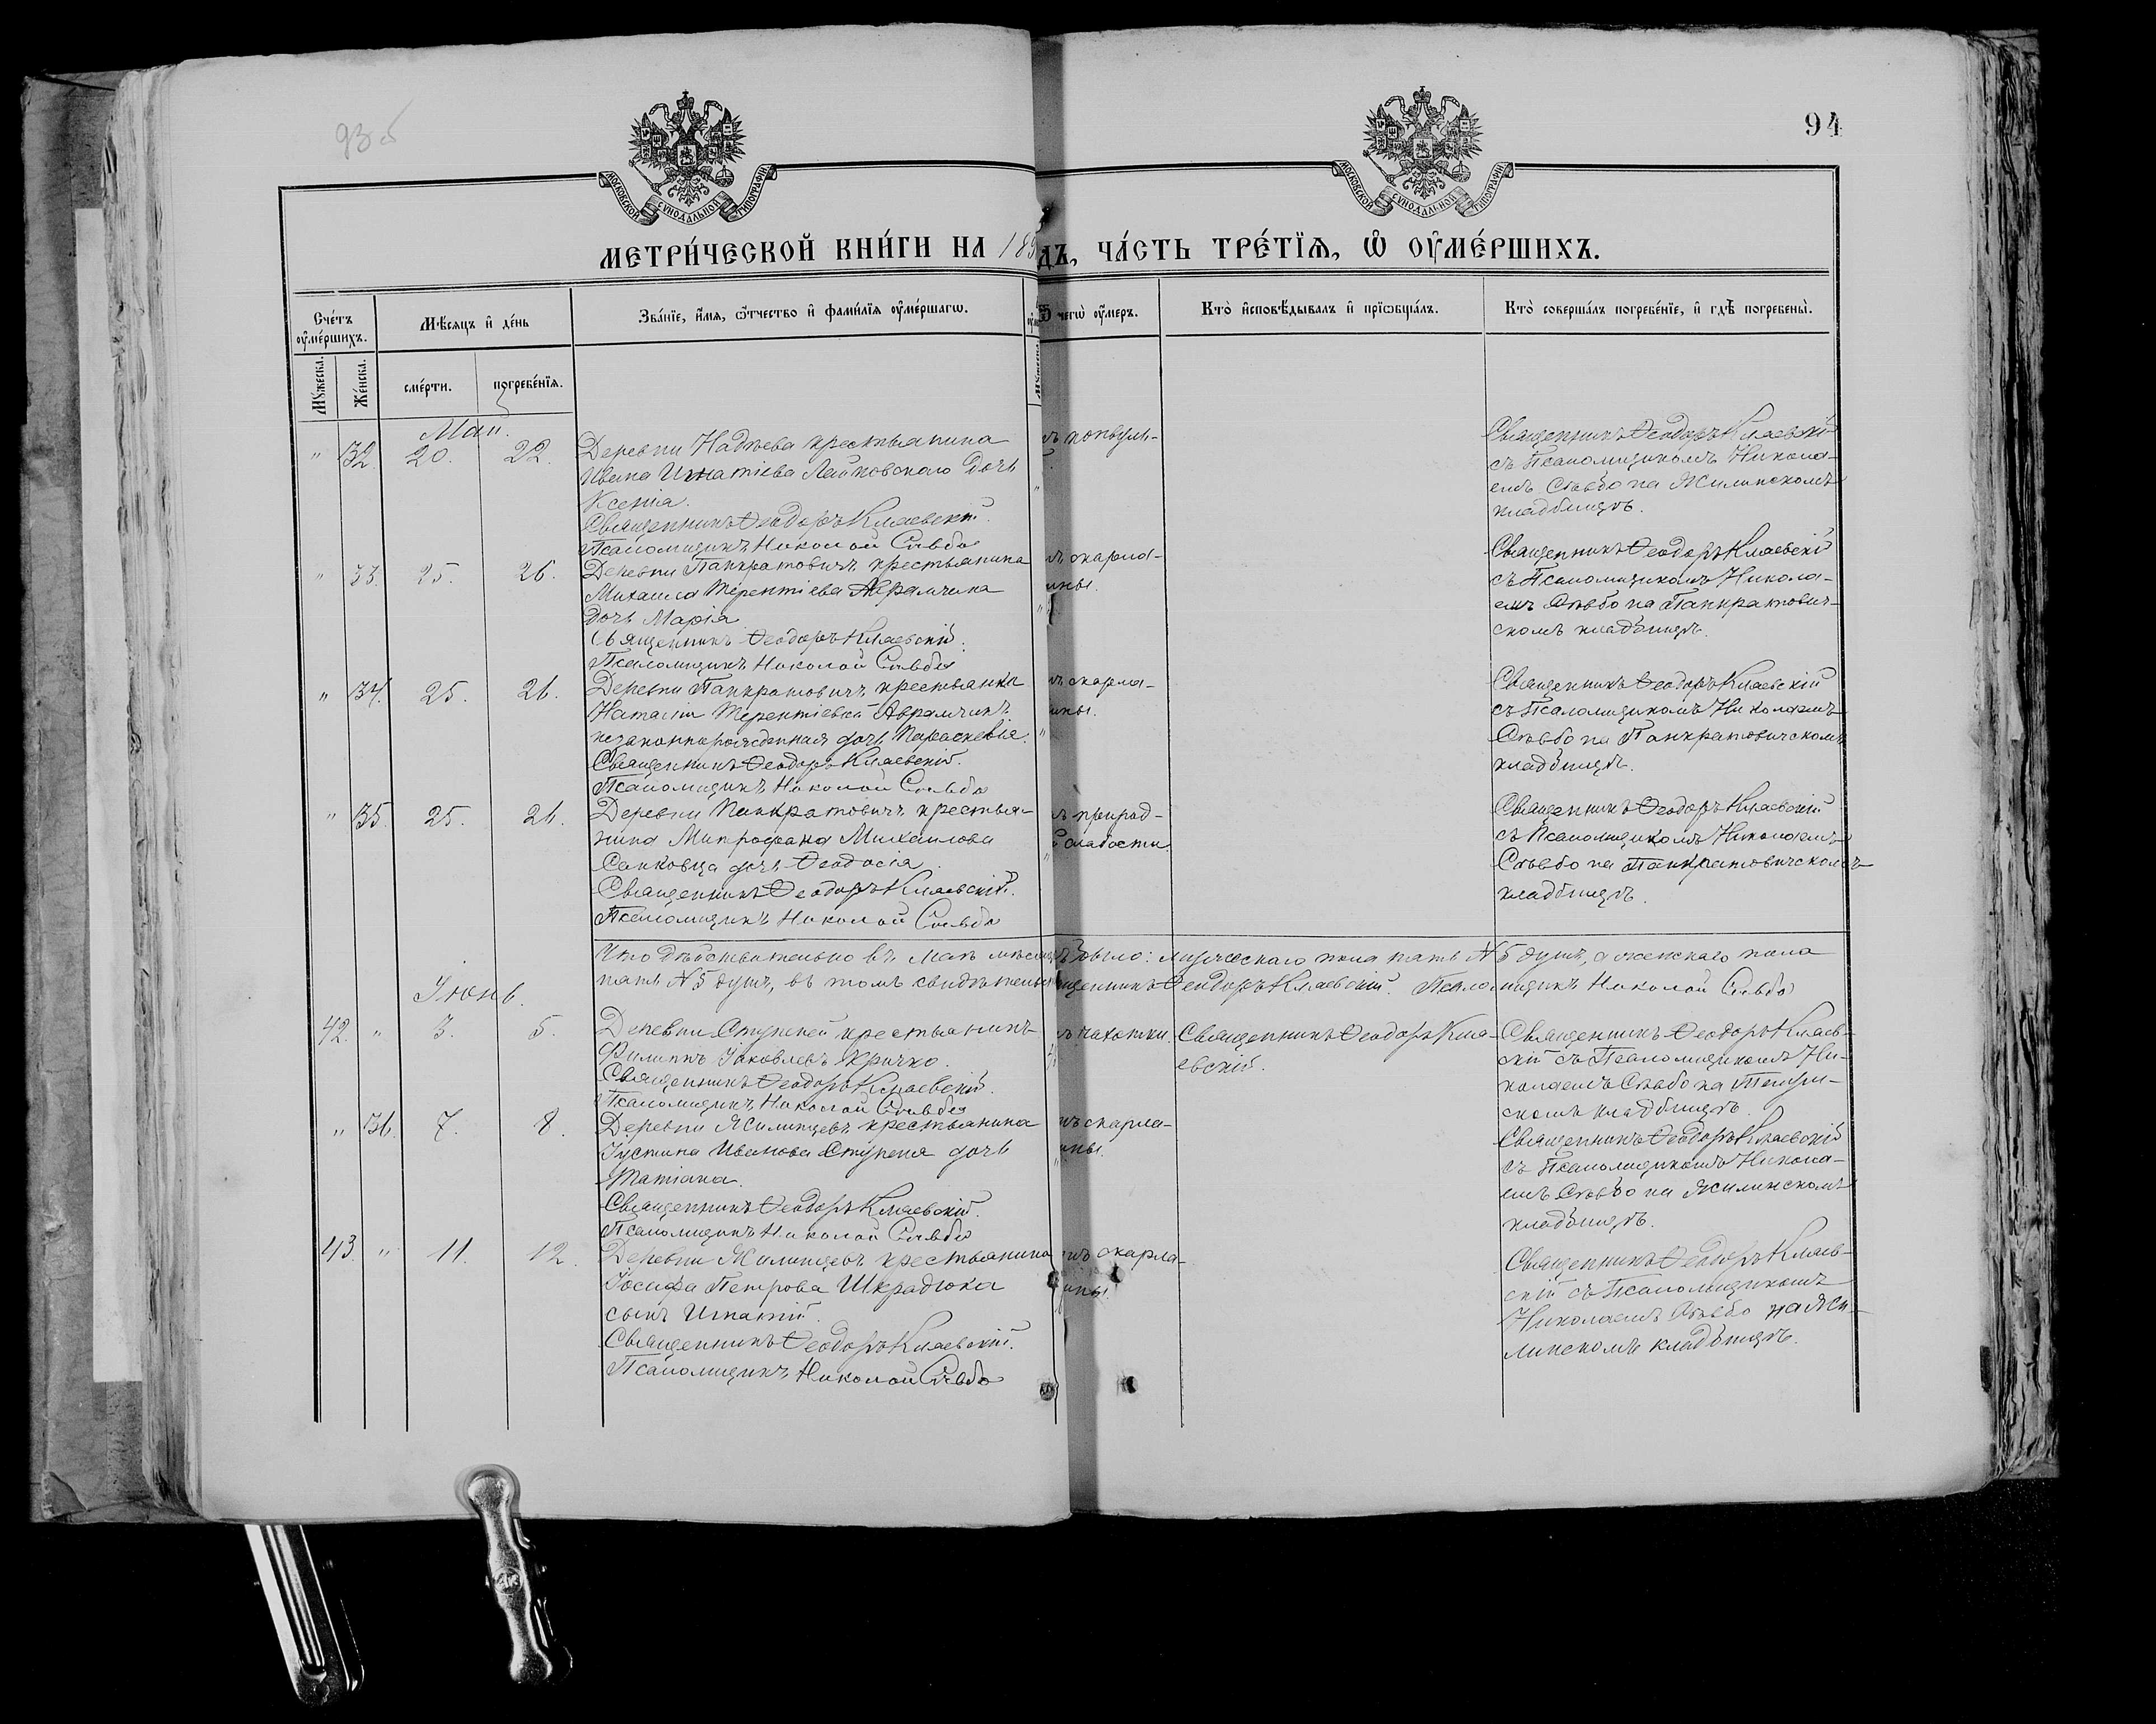 93об
94
МОСКОВСКОЙ СѴНОДАЛЬНОЙ ТИПОГРАФІИ
МОСКОВСКОЙ СѴНОДАЛЬНОЙ ТИПОГРАФІИ
МЕТРИ́ЧЕСКОЙ КНИ́ГИ НА 189
ДЪ, ЧА́СТЬ ТРЕ́ТЇѦ, Ѡ҆ ОУ҆МЕ́РШИХЪ.
Сче́тъ оу҆ме́ршихъ.
Мѣ́сѧцъ и҆ де́нь
Зва́нїе, и҆́мѧ, ѻ҆́тчество и҆ фами́лїѧ оу҆ме́ршагѡ.
Ѿ чегѡ̀ оу҆́меръ.
Кто̀ и҆сповѣ́дывалъ и҆ прїѡбща́лъ.
Кто̀ соверша́лъ погребе́нїе, и҆ гдѣ̀ погребены̀.
Мꙋ́жеска.
Же́нска.
сме́рти.
погребе́нїѧ.
Май.
" 32. 20. 22.
Деревни Надѣева крестьянина
Ивана Игнатіева Лайковскаго дочь
Ксенія.
Священникъ Ѳеодоръ Клаевскій.
Псаломщикъ Николай Сльбо
ъ конвули-
Священникъ Ѳеодоръ Клаевскі
съ Псаломщикомъ Никола-
емъ Сльбо на Жилинскомъ
кладбищѣ.
" 33. 25. 26.
Деревни Панкратовичъ крестьянина
Михаила Терентіева Аврамчика
дочь Марія
Священникъ Ѳеодоръ Клаевскій.
Псаломщикъ Николай Сльбо
ъ скарла-
ины.
Священникъ Ѳеодоръ Клаевскі
съ Псаломщикомъ Никола-
емъ Сльбо на Панкратович-
скомъ кладбищѣ.
" 34. 25. 26.
Деревни Панкратовичъ крестьянки
Наталіи Терентіевой Аврамчикъ
незаконнорожденная дочь Параскевія.
Священникъ Ѳеодоръ Клаевскій.
Псаломщикъ Николай Сльбо
ъ скарла-
ины.
Священникъ Ѳеодоръ Клаевскій
съ Псаломщикомъ Николаемъ
Сльбо на Панкратовичскомъ
кладбищѣ.
" 35. 25. 26.
Деревни Панкратовичъ крестья-
нина Митрофана Михаилова
Санковца дочь Ѳеодосія.
Священникъ Ѳеодоръ Клаевскій.
Псаломщикъ Николай Сльбо
ъ природ-
й слабости
Священникъ Ѳеодоръ Клаевскій
съ Псаломщикомъ Николаемъ
Сльбо на Панкратовичскомъ
кладбищѣ.
Что дѣйствительно въ маѣ мѣсяцѣ было: мужескаго пола пять № 5 душъ, а женскаго пола
пять № 5 душъ, въ томъ свидѣтель щенникъ Ѳеодоръ Клаевскій. Псаломщикъ Николай Сльбо
Іюнь.
42. " 3. 5.
Деревни Ступеней крестьянинъ
Филиппъ Іаковлевъ Кричко.
Священникъ Ѳеодоръ Клаевскій.
Псаломщикъ Николай Сльбо
ъ чахотки.
Священникъ Ѳеодоръ Кла-
евскій.
Священникъ Ѳеодоръ Клаев-
скій съ Псаломщикомъ Ни-
колаемъ Сльбо на
скомъ кладбищѣ.
" 36. 7. 8.
Деревни Жилинцевъ крестьянина
Іустина Иванова Ступеня дочь
Татіана.
Священникъ Ѳеодоръ Клаевскій.
Псаломщикъ Николай Сльбо
тъ скарла-
ины.
Священникъ Ѳеодоръ Клаевскій
съ Псаломщикомъ Никола-
емъ Сльбо на Жилинскомъ
кладбищѣ.
43. " 11. 12.
Деревни Жилинцевъ крестьянина
Іосифа Петрова Шкрадюка
сынъ Игнатій.
Священникъ Ѳеодоръ Клаевскій.
Псаломщикъ Николай Сльбо
тъ скарла-
ины.
Священникъ Ѳеодоръ Клаев-
скій съ Псаломщикомъ
Николаемъ Сльбо на Жи-
линскомъ кладбищѣ.